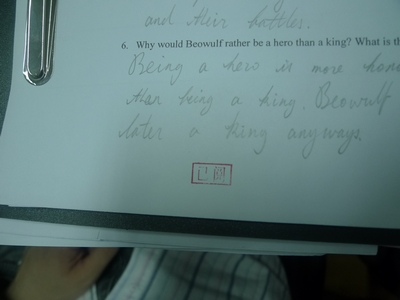 and their battles.
6. Why would Beowulf rather be a hero than a king? What is th
Being a hero is more hono
than being a king. Beowulf
later a king anyways.
已阅